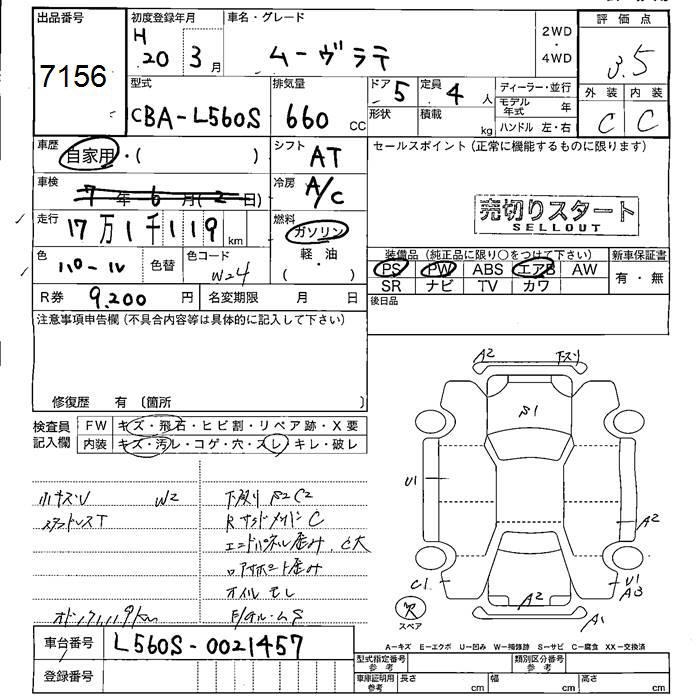 出品番号
7156
初度登録年月
H
20 3 月
車名・グレード
ムーヴラテ
2WD
・
4WD
評価点
3.5
型式
CBA-L560S
排気量
660 CC
ドア 5
定員 4 人
形状
積載 kg
ディーラー・並行
モデル年式 年
ハンドル 左・右
外装 内装
C C
車歴
自家用・( )
シフト
AT
セールスポイント(正常に機能するものに限ります)
車検
7年6月(2日)
冷房
A/C
売切りスタート
SELLOUT
走行
17万1千119 km
燃料
ガソリン
・
軽・油
( )
色
パール
色替
色コード
W24
装備品(純正品に限り〇をつけて下さい)
新車保証書
PS PW ABS エアB AW
SR ナビ TV カワ
有・無
R券 9,200 円
名変期限 月 日
後日品
注意事項申告欄(不具合内容等は具体的に記入して下さい)
修復歴 有 〔箇所 〕
検査員
記入欄
FW キズ・飛石・ヒビ割・リペア跡・X要
内装 キズ・汚レ・コゲ・穴・スレ・キレ・破レ
小キズU W2
下廻り S2C2
C
エンドパネル歪み C大
歪み
オイルモレ
A2
下スリ
S1
U1
A2
C1
A2
U1
A3
A1
スペア
A-キズ E-エクボ U-凹み W-補修跡 S-サビ C-腐食 XX-交換済
車台番号
L560S-0021457
登録番号
型式指定番号
参考
類別区分番号
参考
車庫証明用
参考
長さ cm
幅 cm
高さ cm